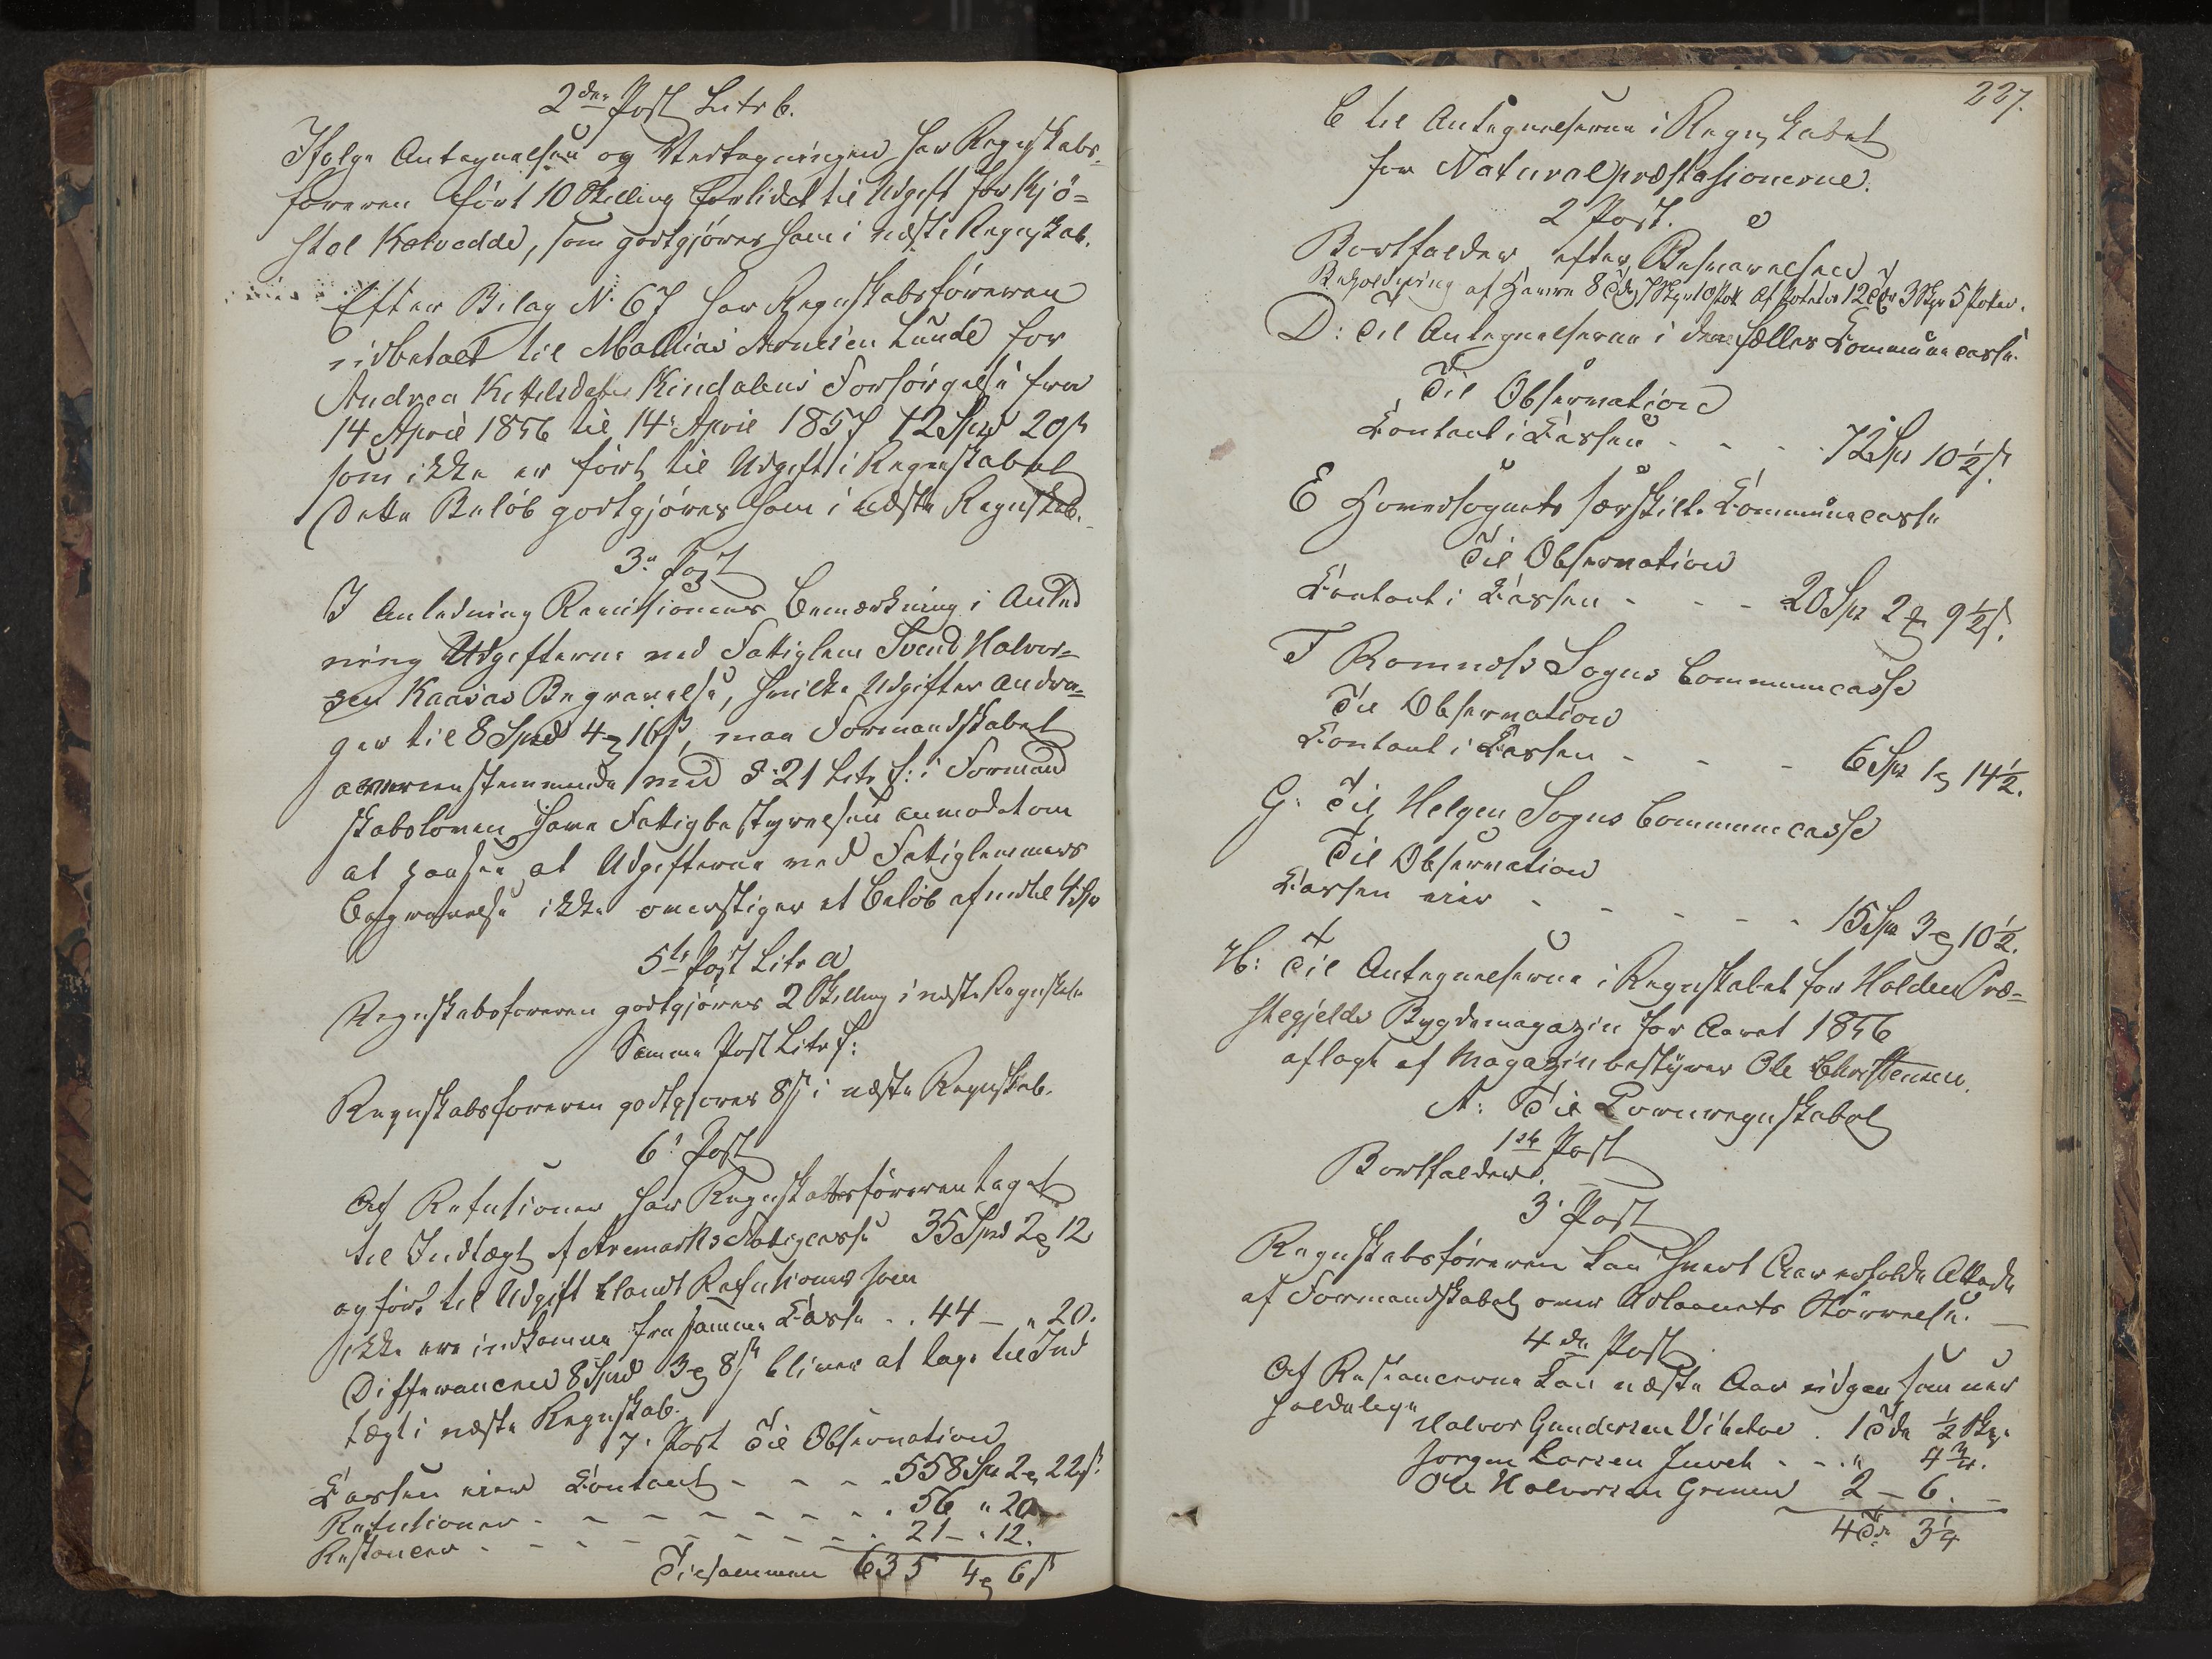 2den Post Litr b.
Ifølge Antegnelsen og Vedtegningen har Regnskabs-
føreren ført 10 Skilling forlidet til Udgift for Kjö-
stol Kolvedde, som godtgjøres ham i næste Regnskab.
Efter Bilag N. 67 har Regnskabsføreren
udbetalt til Mathias Arnesen Lunde for
Andrea Kittilsdatter Kindalens Forsørgelse fra
14 April 1856 til 14 April 1857 12 Spd 20 ß
som ikke er ført til Udgift i Regnskabet
Dette Beløb godtgjøres ham i næste Regnskab.
3e Post
I Anledning Revisionens Bemærkning i Anled
ning Udgifterne ved Fattiglem Svend Halvor-
sen Kaasas Begravelse, hvilke Udgifter andra-
ger til 8 Spd 4 ₰ 16 ß, maa Formandskabet
overensstemmende med § 21 Litr f: i Formand
skabsloven have Fattigbestyrelsen anmodet om
at paasee at Udgifterne ved Fattiglemmers
Begravelse ikke overstiger et Beløb af indtil 4 Spd
5te Post Litr a
Regnskabsføreren godtgjøres 2 Skilling i næste Regnskab
Samme Post Litr f:
Regnskabsføreren godtgjøres 8 ß i næste Regnskab.
6e Post
Af Refutioner har Regnskabsføreren taget
til Indtægt af Aremarks Fattigcasse 35 Spd 2 ₰ 12
og ført til Udgift blandt Refutioner som
ikke ere indkomne fra samme Casse . . 44 — „ 20.
Differancen 8 Spd 3 ₰ 8 ß bliver at tage til Ind
tægt i næste Regnskab.
7. Post Til Observation
Cassen eier Contant - - - - 558 Sp 2 ₰ 22 ß.
Refutioner - - - - - - - . 56 „ 20
Restancer - - - - - - - . 21 — „ 12.
Tilsammen 635 4 ₰ 6 ß
227.
C til Antegnelserne i Regnskabet
for Naturalpræstasionerne.
2 Post.
Bortfalder efter Besvarelsen
Beholdning af Havre 8 Tdr 7 Skp 10 Pot Af Poteter 12 Tdr 3 Skp 5 Poter.
D: Til Antegnelserne i den fælles Communecasse
Til Observation
Contant i Cassen - - - 72 Sp 10 ½ ß.
E Hovedsognets særskilte Communecasse
Til Observation
Contant i Cassen - - - 20 Sp 2 ₰ 9 ½ ß.
F Romnæs Sogns Communecasse
Til Observation
Contant i Cassen - - - 6 Sp 1 ₰ 14 ½.
G. Til Helgen Sogns Communecasse
Til Observation
Cassen eier - - - - - - 15 Sp 3 ₰ 10 ½.
H: Til Antegnelserne i Regnskabet for Holden Præ-
stegjelds Bygdemagazin for Aaret 1856
aflagt af Magazinbestyrer Ole Christensen.
A: Til Cornregnskabet
1ste Post
Bortfalder.
3. Post
Regnskabsføreren kan hvert Aar erholde Attest
af Formandskabet over Udlaanets Størrelse. —
4de Post
Af Restancerne kan næste Aar udgaa som uer
holdelige
Halvor Gundersen Vibetoe . 1 Tde ½ Skp.
Jørgen Larsen Juveh - - . „ 4 ¾.
Ole Halvorsen Grinen 2 — 6. —
4 Tdr 3 ¼